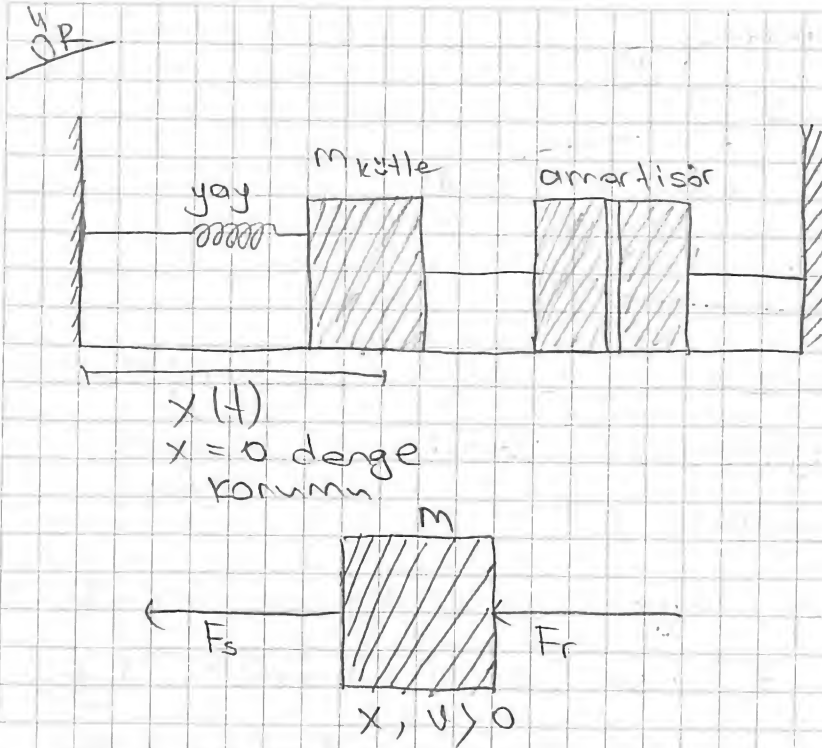 ÖR
yay
m kütle
amortisör
x(t)
x = 0 denge
konumu
m
Fs
Fr
x, v > 0